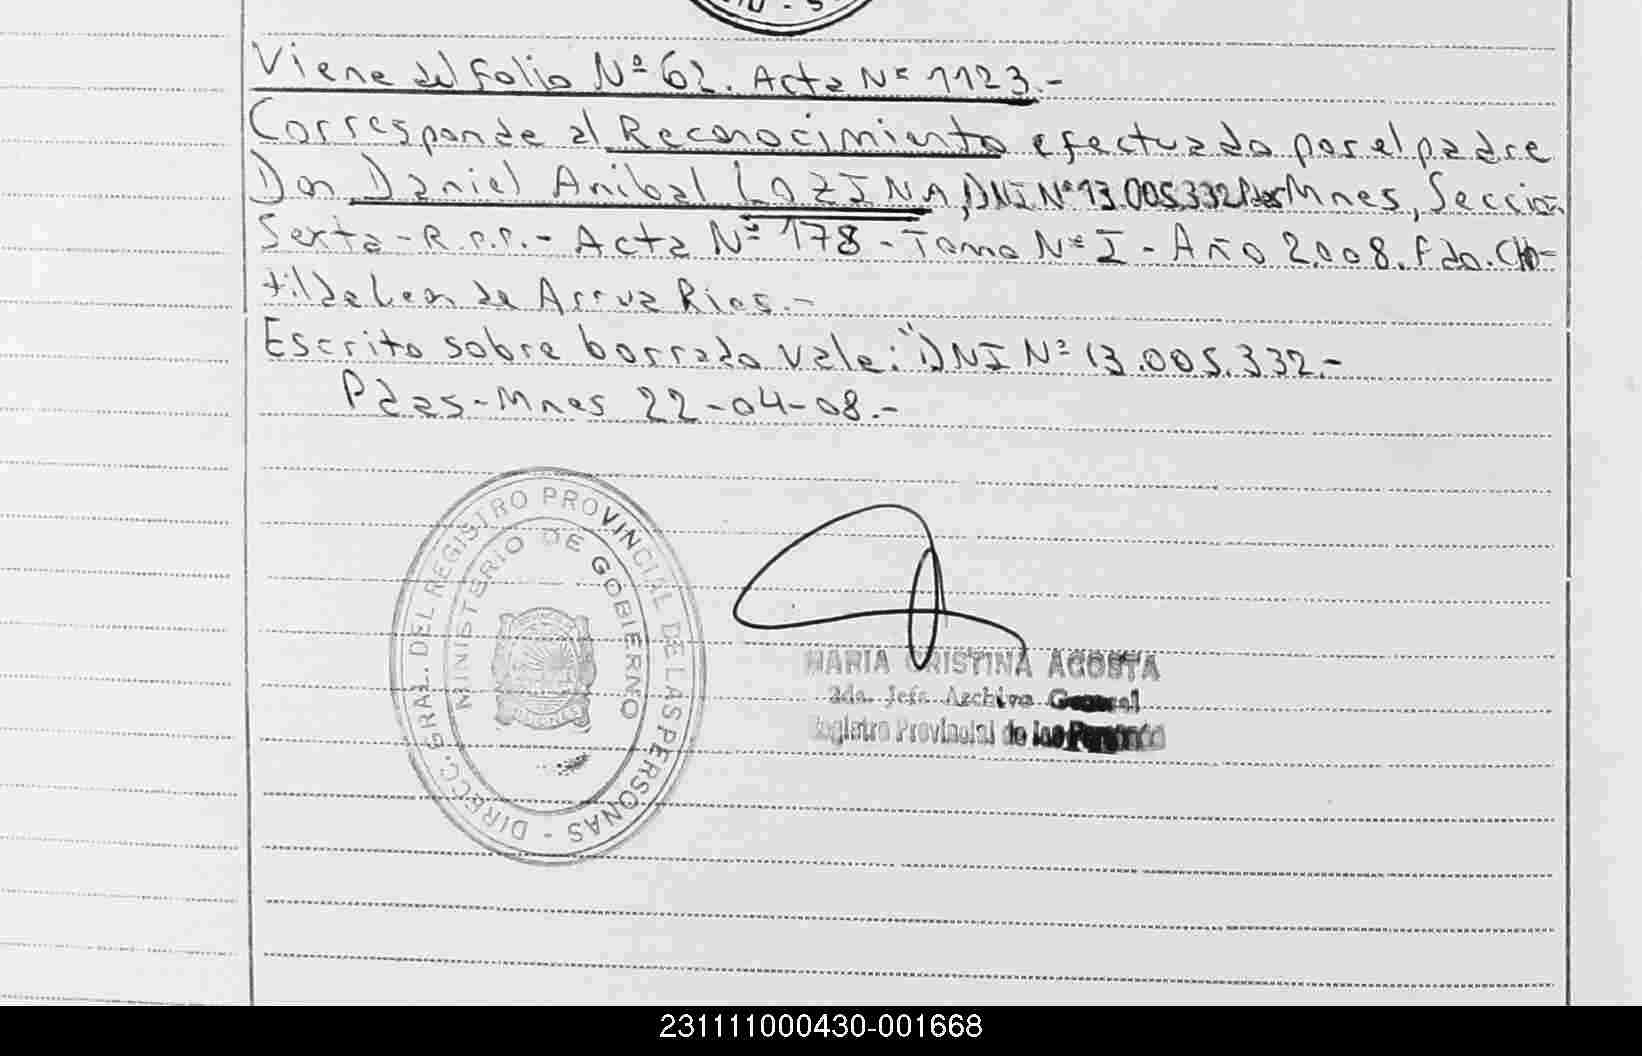 Viene del folio Nº 62. Acta Nº 1123.-
Corresponde al Reconocimiento efectuado por el padre
Don Daniel Anibal LOZINA, DNI Nº 13.005.332 Pdas Mnes, Sección
Sexta - R.P.P. - Acta Nº 178 - Tomo Nº I - Año 2.008. Fdo. Clo-
tilde Leon de Arrua Rios.-
Escrito sobre borrado vale: "DNI Nº 13.005.332.-
Pdas-Mnes 22-04-08.-
DIRECC. GRAL. DEL REGISTRO PROVINCIAL DE LAS PERSONAS -
MINISTERIO DE GOBIERNO
MISIONES
MARIA CRISTINA ACOSTA
2da. Jefa Archivo General
Registro Provincial de las Personas
231111000430-001668